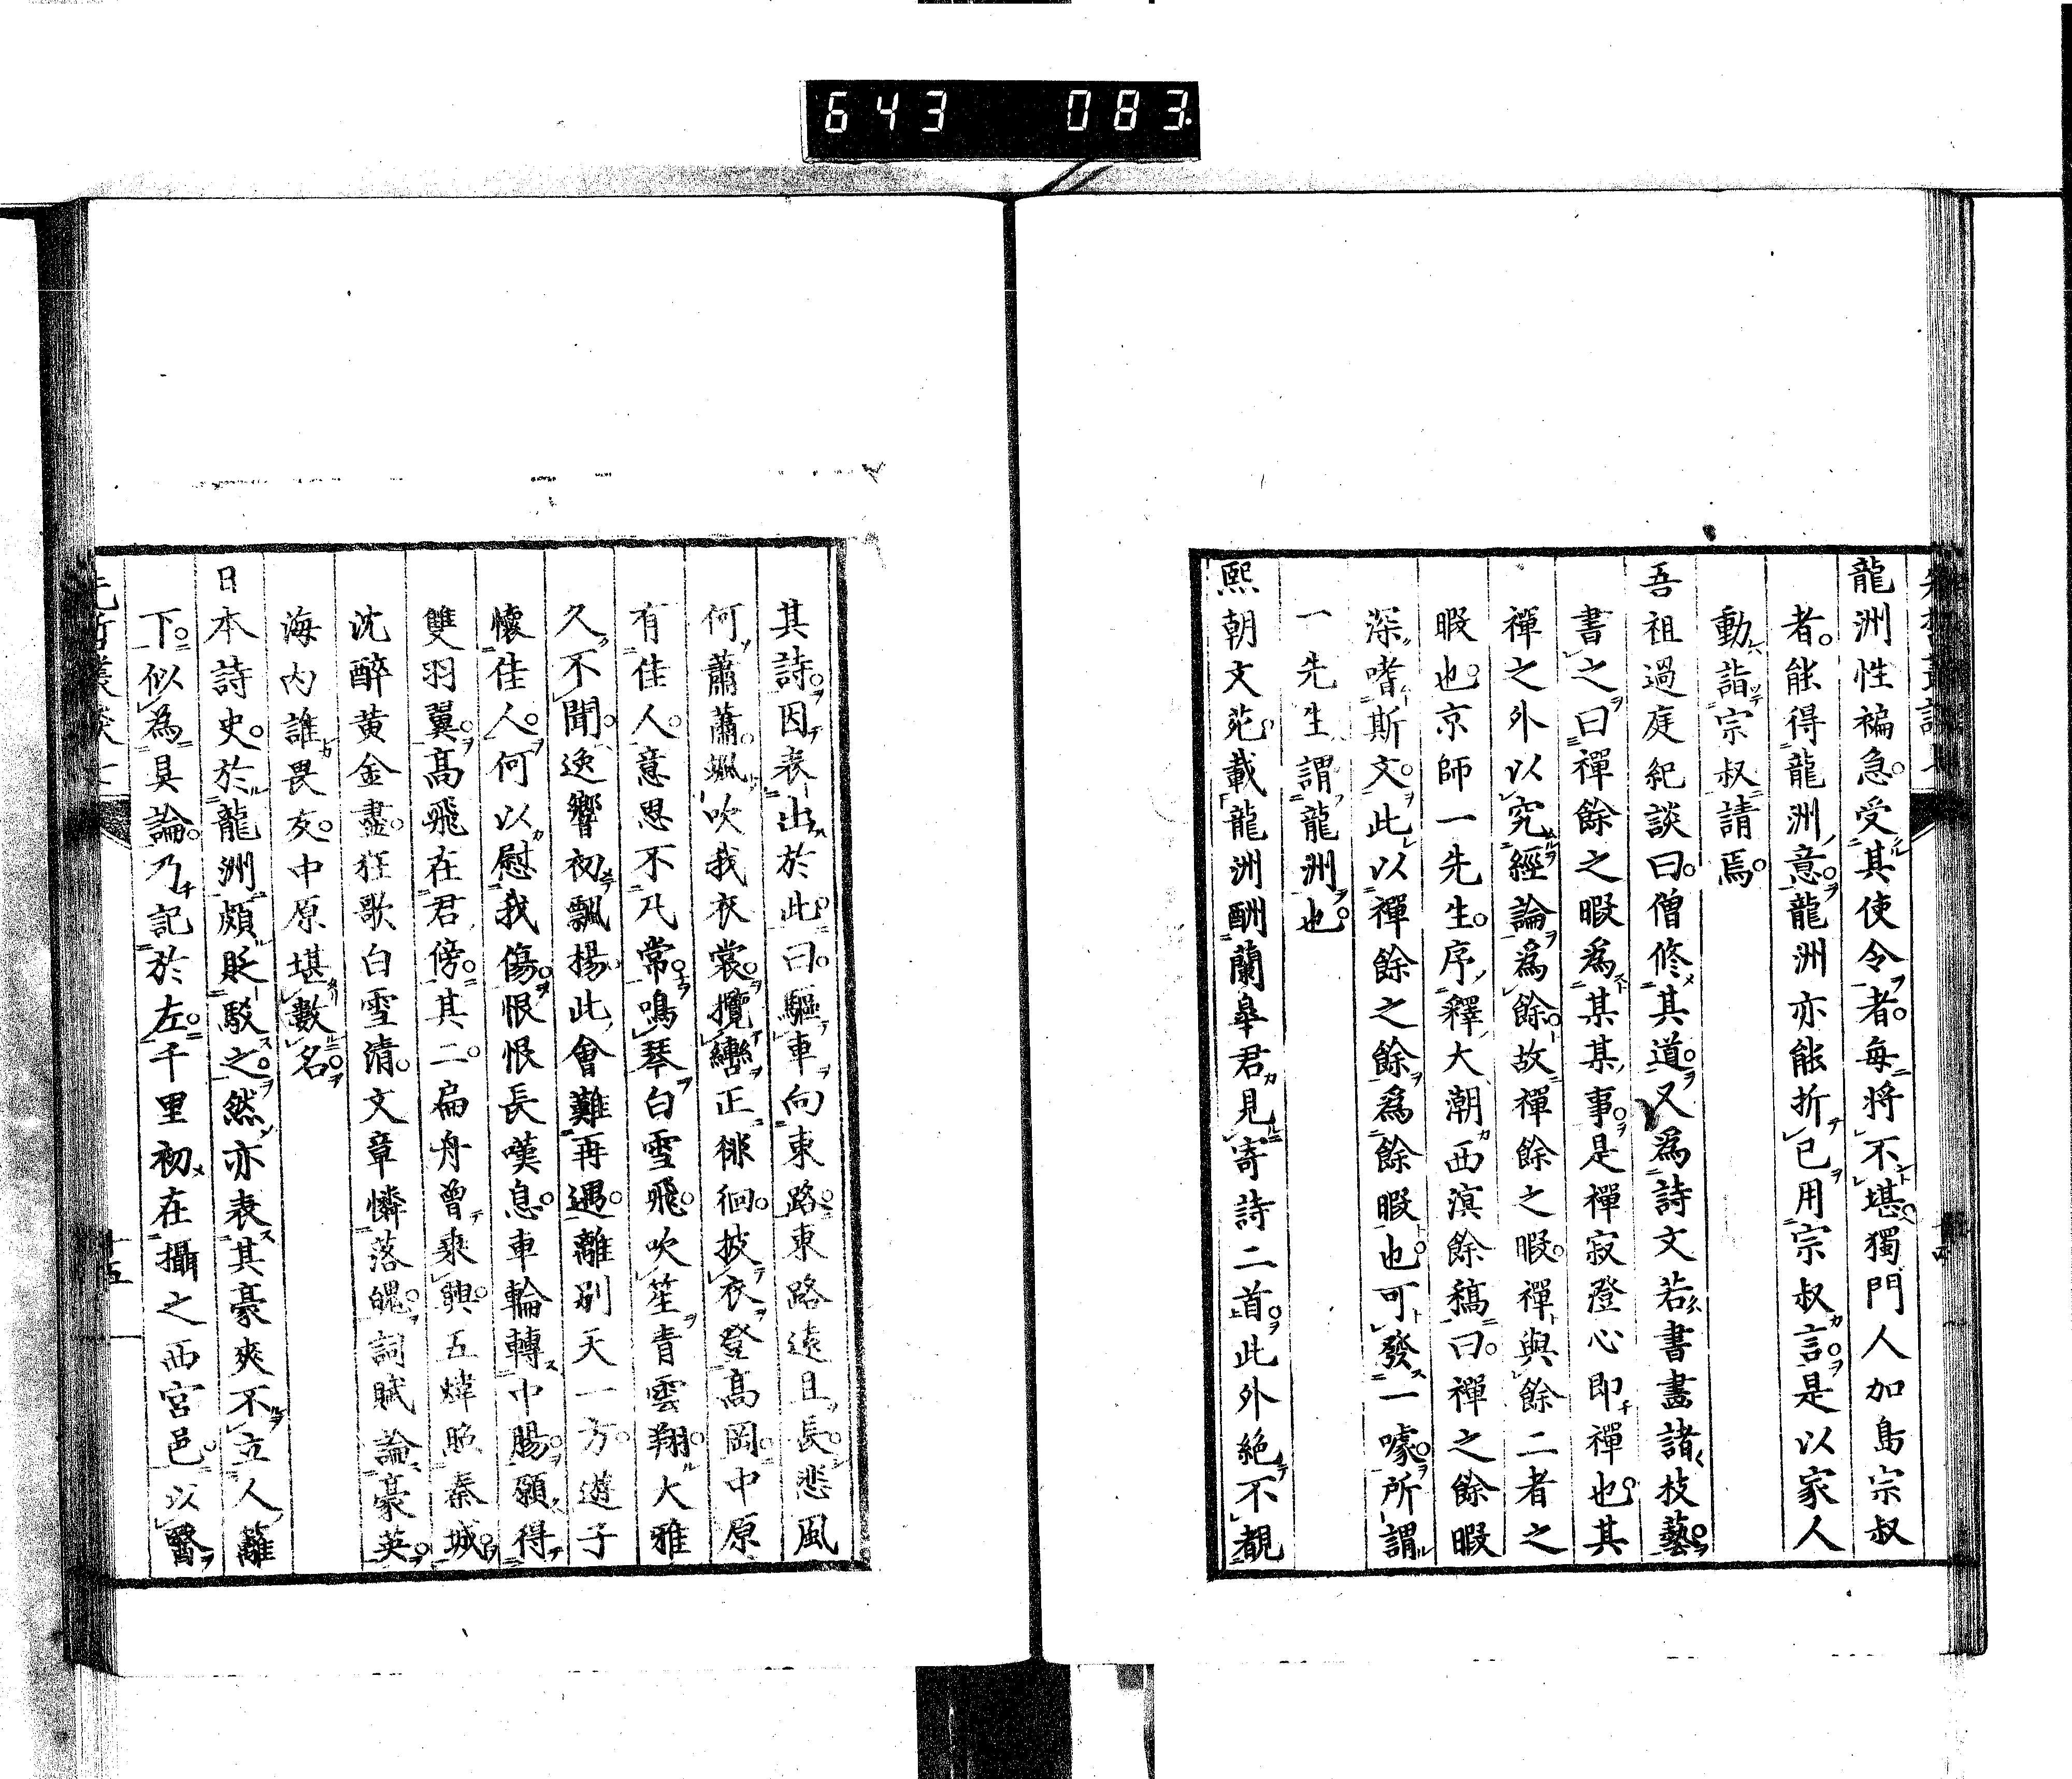 643 083
龍洲性褊急受其使令者每將不堪獨門人加島宗叔
者能得龍洲意龍洲亦能折已用宗叔言是以家人
動詣宗叔請焉
吾祖過庭紀談曰僧修其道又爲詩文若書畫諸技藝
書之曰禪餘之暇爲某某事是禪寂澄心即禪也其
禪之外以究經論爲餘故禪餘之暇禪與餘二者之
暇也京師一先生序釋大潮西溟餘稿曰禪之餘暇
深嗜斯文此以禪餘之餘爲餘暇也可發一噱所謂
一先生謂龍洲也
熙朝文苑載龍洲酬蘭皋君見寄詩二首此外絶不覩
其詩因表出於此曰驅車向東路東路遠且長悲風
何蕭蕭颯吹我衣裳攬轡正徘徊披衣登高岡中原
有佳人意思不凡常鳴琴白雪飛吹笙青雲翔大雅
久不聞逸響初飄揚此會難再遇離別天一方遊子
懷佳人何以慰我傷恨恨長嘆息車輪轉中腸願得
雙羽翼高飛在君傍其二扁舟曾乘興五煒照秦城
沈醉黄金盡狂歌白雪清文章憐落魄詞賦論豪英
海内誰畏友中原堪數名
日本詩史於龍洲頗貶駁之然亦表其豪爽不立人籬
下似爲具論乃記於左千里初在攝之西宮邑以醫
先哲叢談七
十五